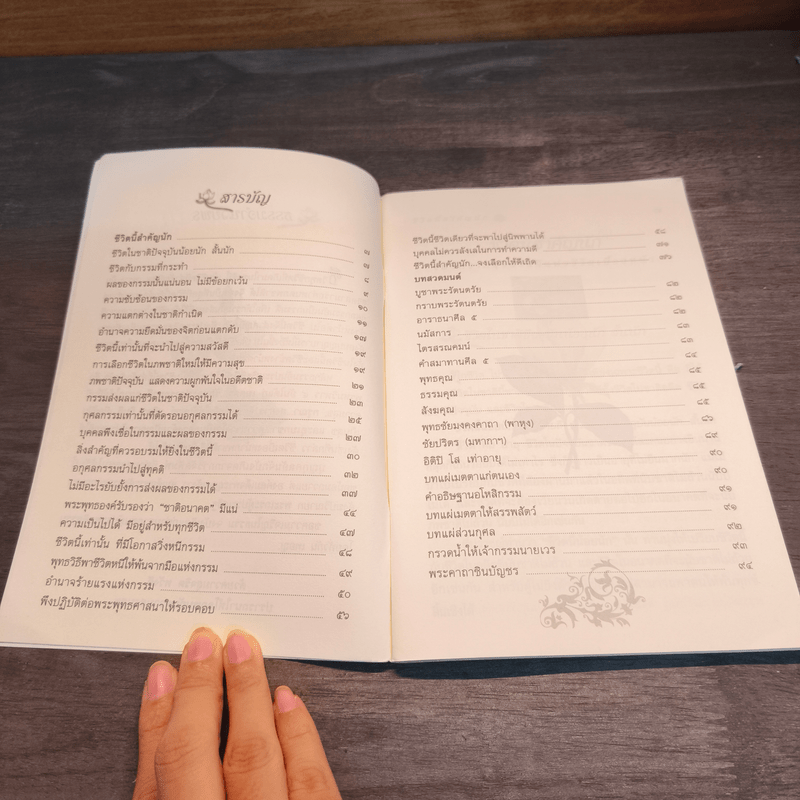 สารบัญ
ชีวิตนี้สำคัญนัก
ชีวิตในชาติปัจจุบันน้อยนัก สั้นนัก ๗
ชีวิตกับกรรมที่กระทำ ๗
ผลของกรรมนั้นแน่นอน ไม่มีข้อยกเว้น ๘
ความซับซ้อนของกรรม ๙
ความแตกต่างในชาติกำเนิด ๑๐
อำนาจความยึดมั่นของจิตก่อนแตกดับ ๑๑
ชีวิตนี้เท่านั้นที่จะนำไปสู่ความสวัสดี ๑๗
การเลือกชีวิตในภพชาติใหม่ให้มีความสุข ๑๙
ภพชาติปัจจุบัน แสดงความผูกพันใจในอดีตชาติ ๑๙
กรรมส่งผลแก่ชีวิตในชาติปัจจุบัน ๒๑
กุศลกรรมเท่านั้นที่ตัดรอนอกุศลกรรมได้ ๒๓
บุคคลพึงเชื่อในกรรมและผลของกรรม ๒๕
สิ่งสำคัญที่ควรอบรมให้ยิ่งในชีวิตนี้ ๒๗
อกุศลกรรมนำไปสู่ทุคติ ๓๐
ไม่มีอะไรยับยั้งการส่งผลของกรรมได้ ๓๒
พระพุทธองค์รับรองว่า "ชาติอนาคต" มีแน่ ๓๗
ความเป็นไปได้ มีอยู่สำหรับทุกชีวิต ๔๔
ชีวิตนี้เท่านั้น ที่มีโอกาสวิ่งหนีกรรม ๔๗
พุทธวิธีพาชีวิตหนีให้พ้นจากมือแห่งกรรม ๔๘
อำนาจร้ายแรงแห่งกรรม ๔๙
พึงปฏิบัติต่อพระพุทธศาสนาให้รอบคอบ ๕๐
๕๖
ชีวิตนี้ชีวิตเดียวที่จะพาไปสู่นิพพานได้ ๕๘
บุคคลไม่ควรลังเลในการทำความดี ๗๑
ชีวิตนี้สำคัญนัก...จงเลือกให้ดีเถิด ๗๖
บทสวดมนต์
บูชาพระรัตนตรัย ๘๒
กราบพระรัตนตรัย ๘๒
อาราธนาศีล ๕ ๘๒
นมัสการ ๘๓
ไตรสรณคมน์ ๘๓
คำสมาทานศีล ๕ ๘๔
พุทธคุณ ๘๕
ธรรมคุณ ๘๕
สังฆคุณ ๘๕
พุทธชัยมงคงคาถา (พาหุง) ๘๖
ชัยปริตร (มหากาฯ) ๘๙
อิติปิ โส เท่าอายุ ๙๐
บทแผ่เมตตาแก่ตนเอง ๙๐
คำอธิษฐานอโหสิกรรม ๙๑
บทแผ่เมตตาให้สรรพสัตว์ ๙๑
บทแผ่ส่วนกุศล ๙๒
กรวดน้ำให้เจ้ากรรมนายเวร ๙๓
พระคาถาชินบัญชร ๙๔